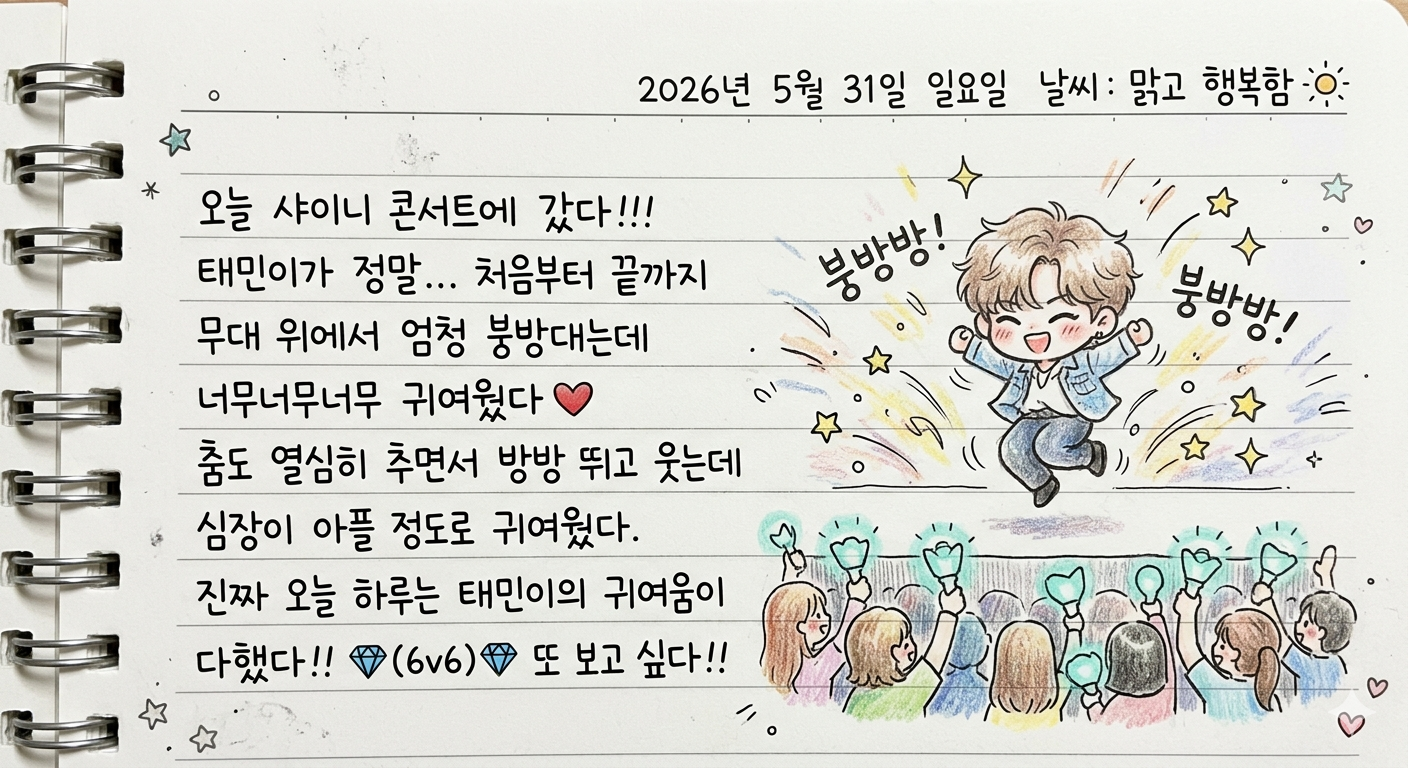 2026년 5월 31일 일요일 날씨: 맑고 행복함
오늘 샤이니 콘서트에 갔다!!!
태민이가 정말... 처음부터 끝까지
무대 위에서 엄청 붕방대는데
너무너무너무 귀여웠다
춤도 열심히 추면서 방방 뛰고 웃는데
심장이 아플 정도로 귀여웠다.
진짜 오늘 하루는 태민이의 귀여움이
다했다!! 💎(6v6)💎 또 보고 싶다!!
붕방방!
붕방방!